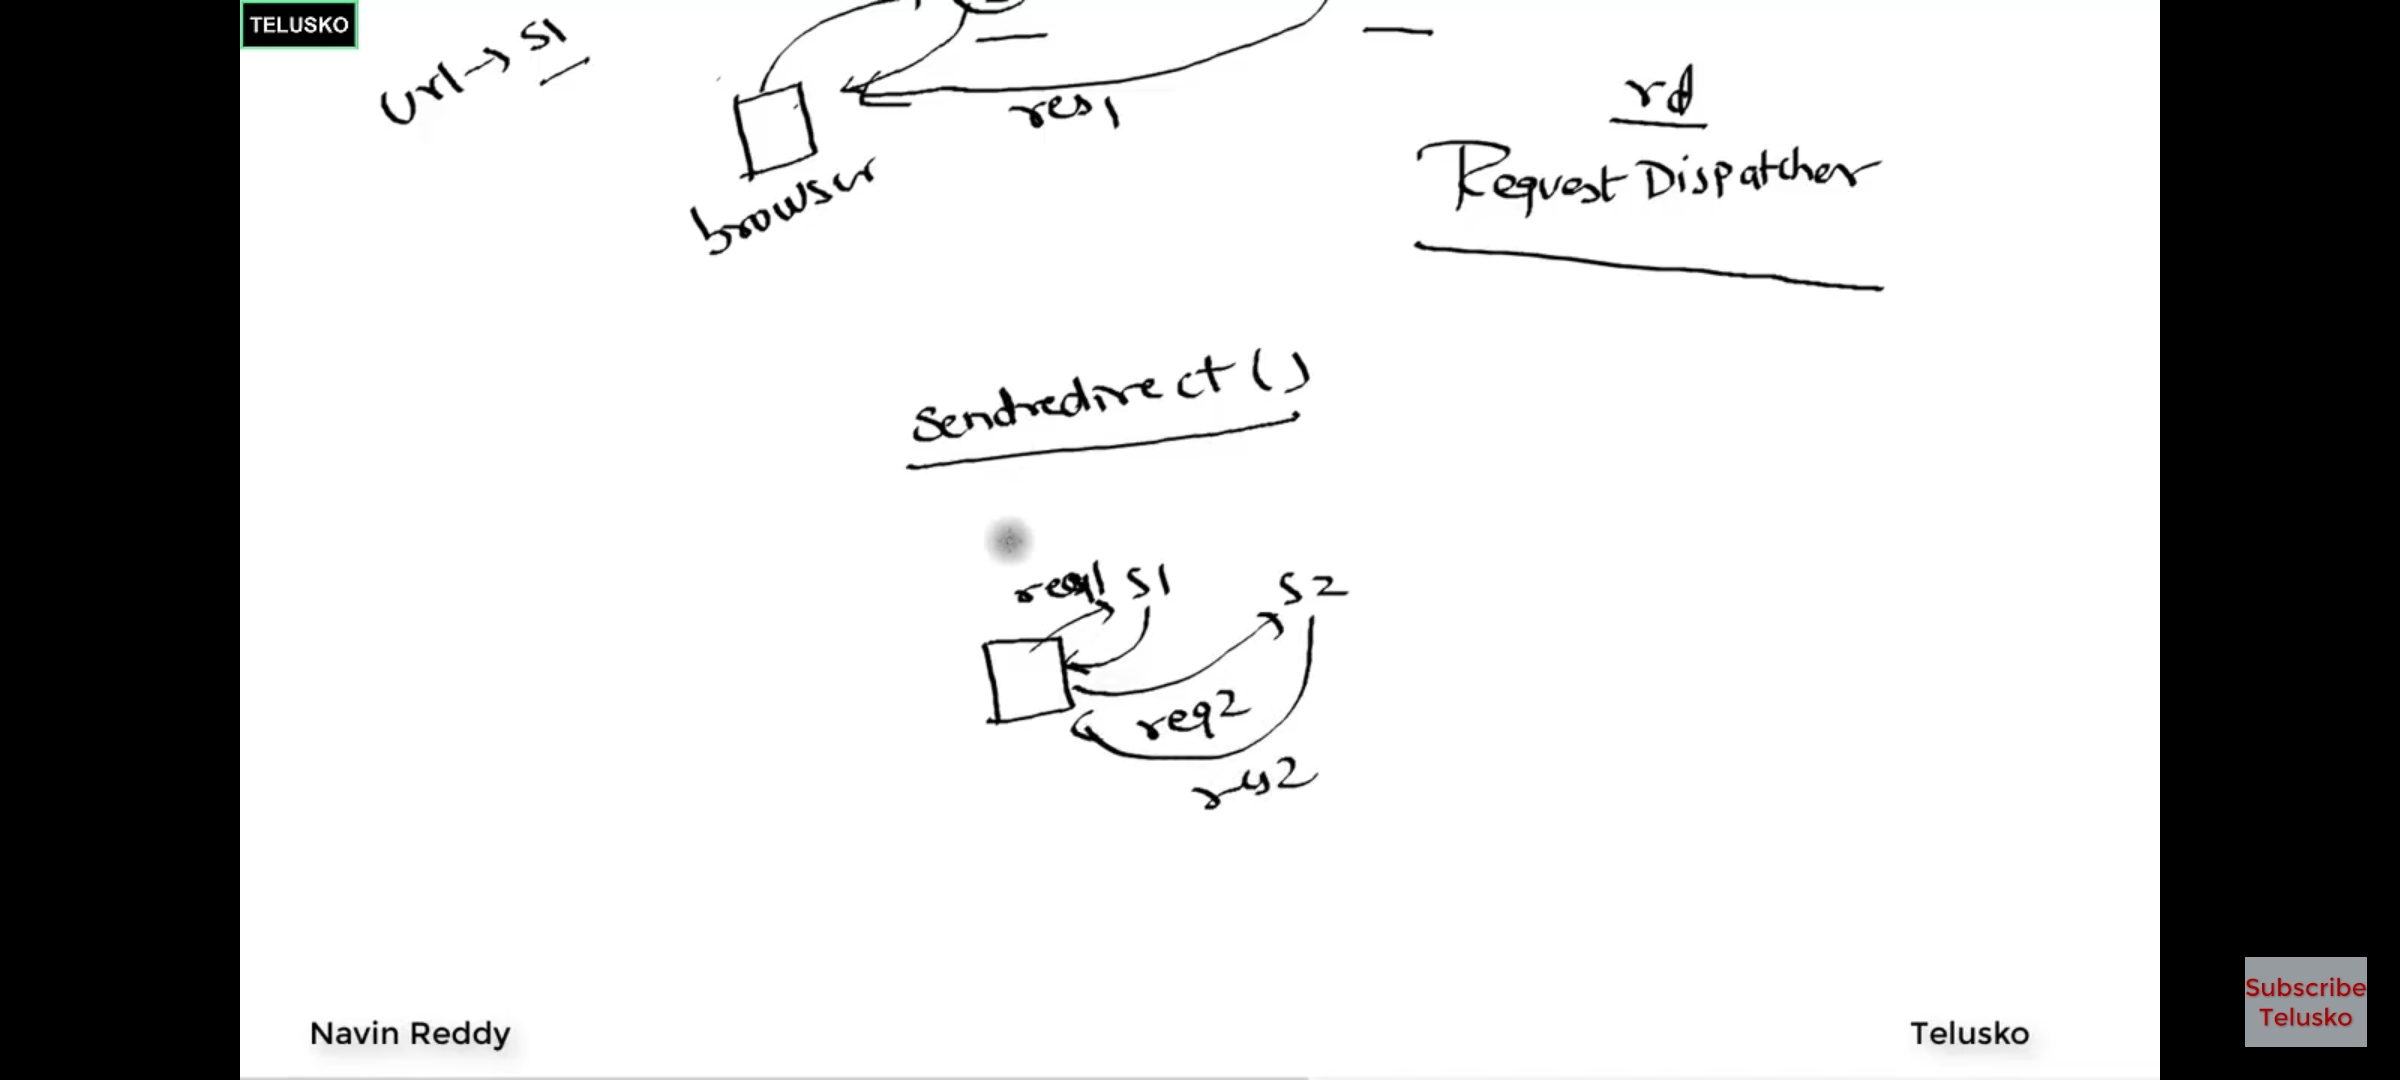 TELUSKO
url → S1
res1
browser
rd
RequestDispatcher
Sendredirect()
req1 S1
S2
req2
res2
Navin Reddy
Telusko
Subscribe
Telusko